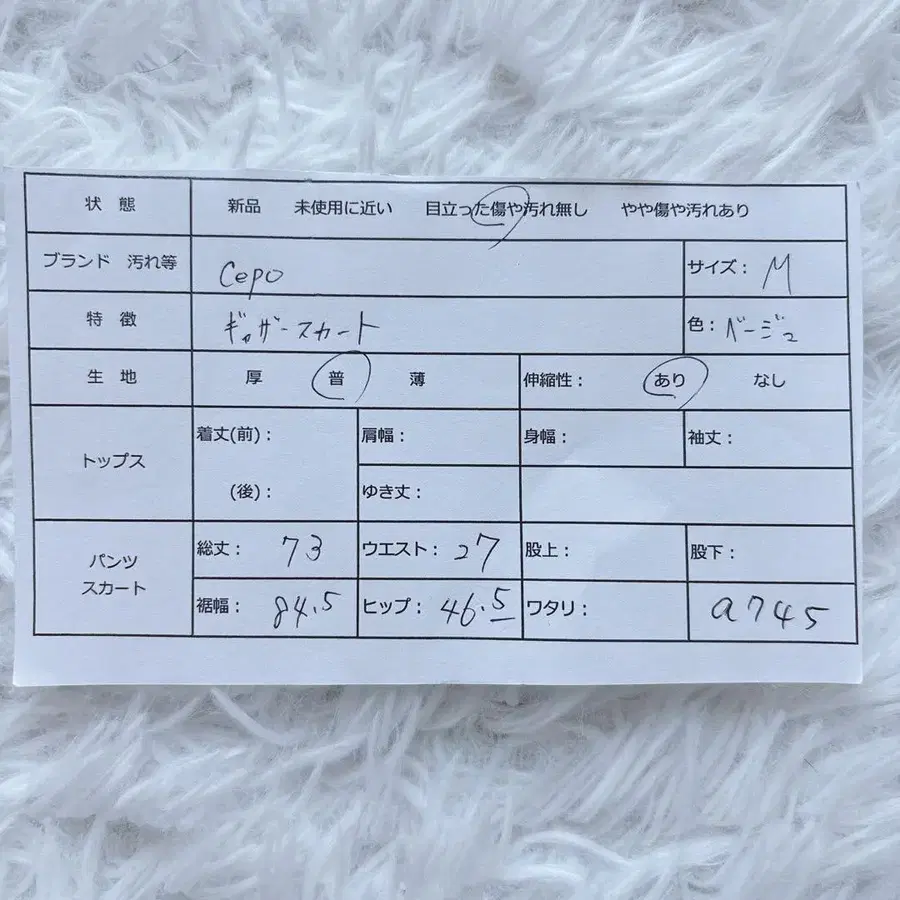 状態 新品 未使用に近い 目立った傷や汚れ無し やや傷や汚れあり
ブランド 汚れ等 cepo サイズ： M
特徴 ギャザースカート 色： ベージュ
生地 厚 普 薄 伸縮性： あり なし
トップス 着丈(前)： 肩幅： 身幅： 袖丈：
(後)： ゆき丈：
パンツ スカート 総丈： 73 ウエスト： 27 股上： 股下：
裾幅： 84.5 ヒップ： 46.5 ワタリ： a745